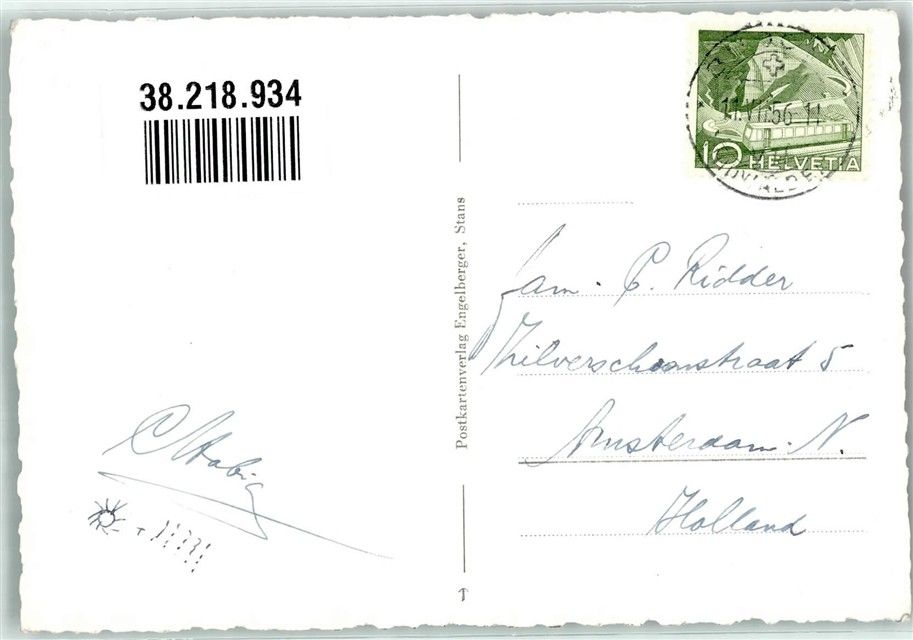 38.218.934
11.VI.56-11
10 HELVETIA
Postkartenverlag Engelberger, Stans
Fam. C. Ridder
Zilverschoonstraat 5
Amsterdam. N.
Holland